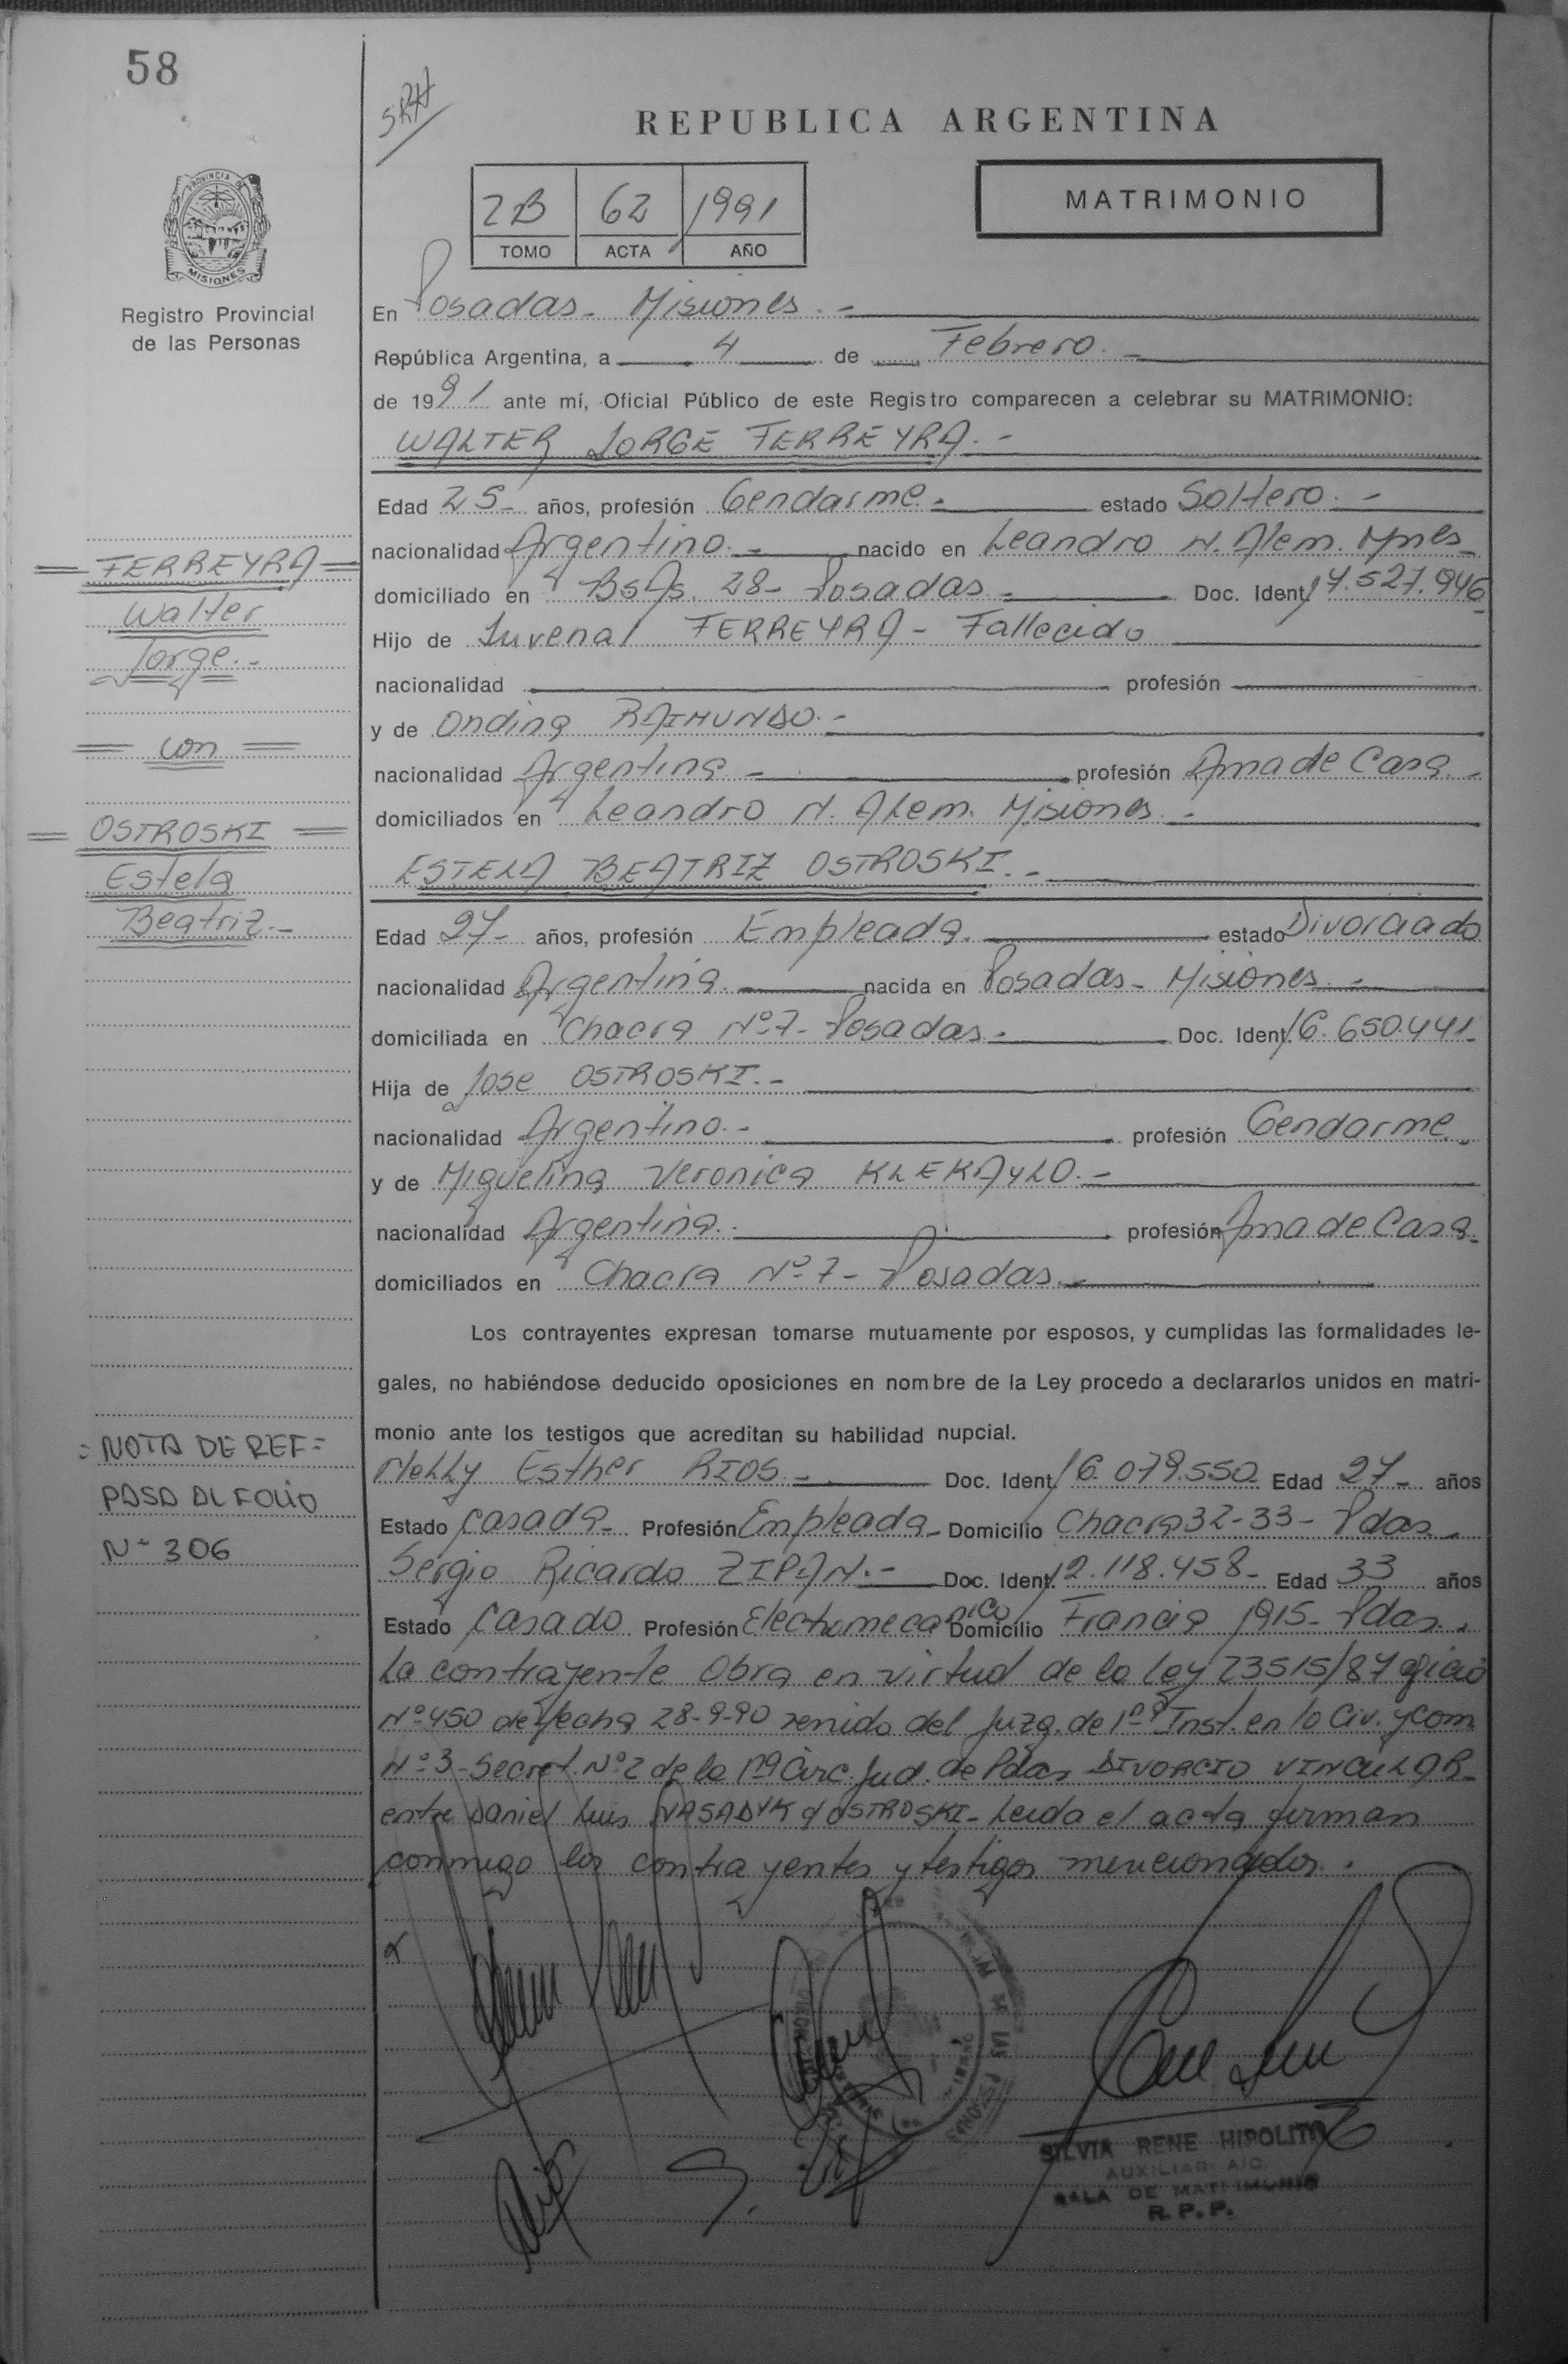 58
SRH
REPUBLICA ARGENTINA
2B 62 1991
TOMO ACTA AÑO
MATRIMONIO
PROVINCIA DE
MISIONES
Registro Provincial
de las Personas
En Posadas - Misiones. -
República Argentina, a 4 de Febrero. -
de 1991 ante mí, Oficial Público de este Registro comparecen a celebrar su MATRIMONIO:
WALTER JORGE FERREYRA. -
Edad 25 - años, profesión Gendarme. - estado Soltero. -
nacionalidad Argentino. - nacido en Leandro N. Alem. Mnes -
domiciliado en Bs As. 28 - Posadas. - Doc. Ident. 17.527.946
Hijo de Juvenal FERREYRA - Fallecido
nacionalidad profesión
y de Ondina RAIMUNDO. -
nacionalidad Argentina - profesión Ama de Casa. -
domiciliados en Leandro N. Alem. Misiones. -
ESTELA BEATRIZ OSTROSKI. -
Edad 27 - años, profesión Empleada. estado Divorciado
nacionalidad Argentina. nacida en Posadas - Misiones. -
domiciliada en Chacra Nº 7 - Posadas. - Doc. Ident. 16.650.441 -
Hija de Jose OSTROSKI. -
nacionalidad Argentino. - profesión Gendarme -
y de Miguelina Veronica KLEKAYLO. -
nacionalidad Argentina. profesión Ama de Casa -
domiciliados en Chacra Nº 7 - Posadas. -
Los contrayentes expresan tomarse mutuamente por esposos, y cumplidas las formalidades le-
gales, no habiéndose deducido oposiciones en nombre de la Ley procedo a declararlos unidos en matri-
monio ante los testigos que acreditan su habilidad nupcial.
Nelly Esther RIOS - Doc. Ident. 16.079.550 Edad 27 - años
Estado Casada - Profesión Empleada - Domicilio Chacra 32-33 - Pdas. -
Sergio Ricardo ZIPAN. - Doc. Ident. 12.118.458 - Edad 33 años
Estado Casado Profesión Electromecanico Domicilio Francia 1915 - Pdas. -
La contrayente Obra en virtud de la ley 23515/87 oficio
Nº 450 de fecha 28-9-90 venido del Juzg. de 1ª Inst. en lo Civ. y Com
Nº 3 - Secret. Nº 2 de la 1ra Circ. Jud. de Pdas DIVORCIO VINCULAR -
entre Daniel Luis NASADYK y OSTROSKI - Leida el acta firman
conmigo los contrayentes y testigos mencionados.
= FERREYRA =
Walter
Jorge. -
= con =
= OSTROSKI =
Estela
Beatriz. -
= NOTA DE REF =
PASA AL FOLIO
Nº 306
SILVIA RENE HIPOLITO
AUXILIAR A/C
SALA DE MATRIMONIO
R. P. P.